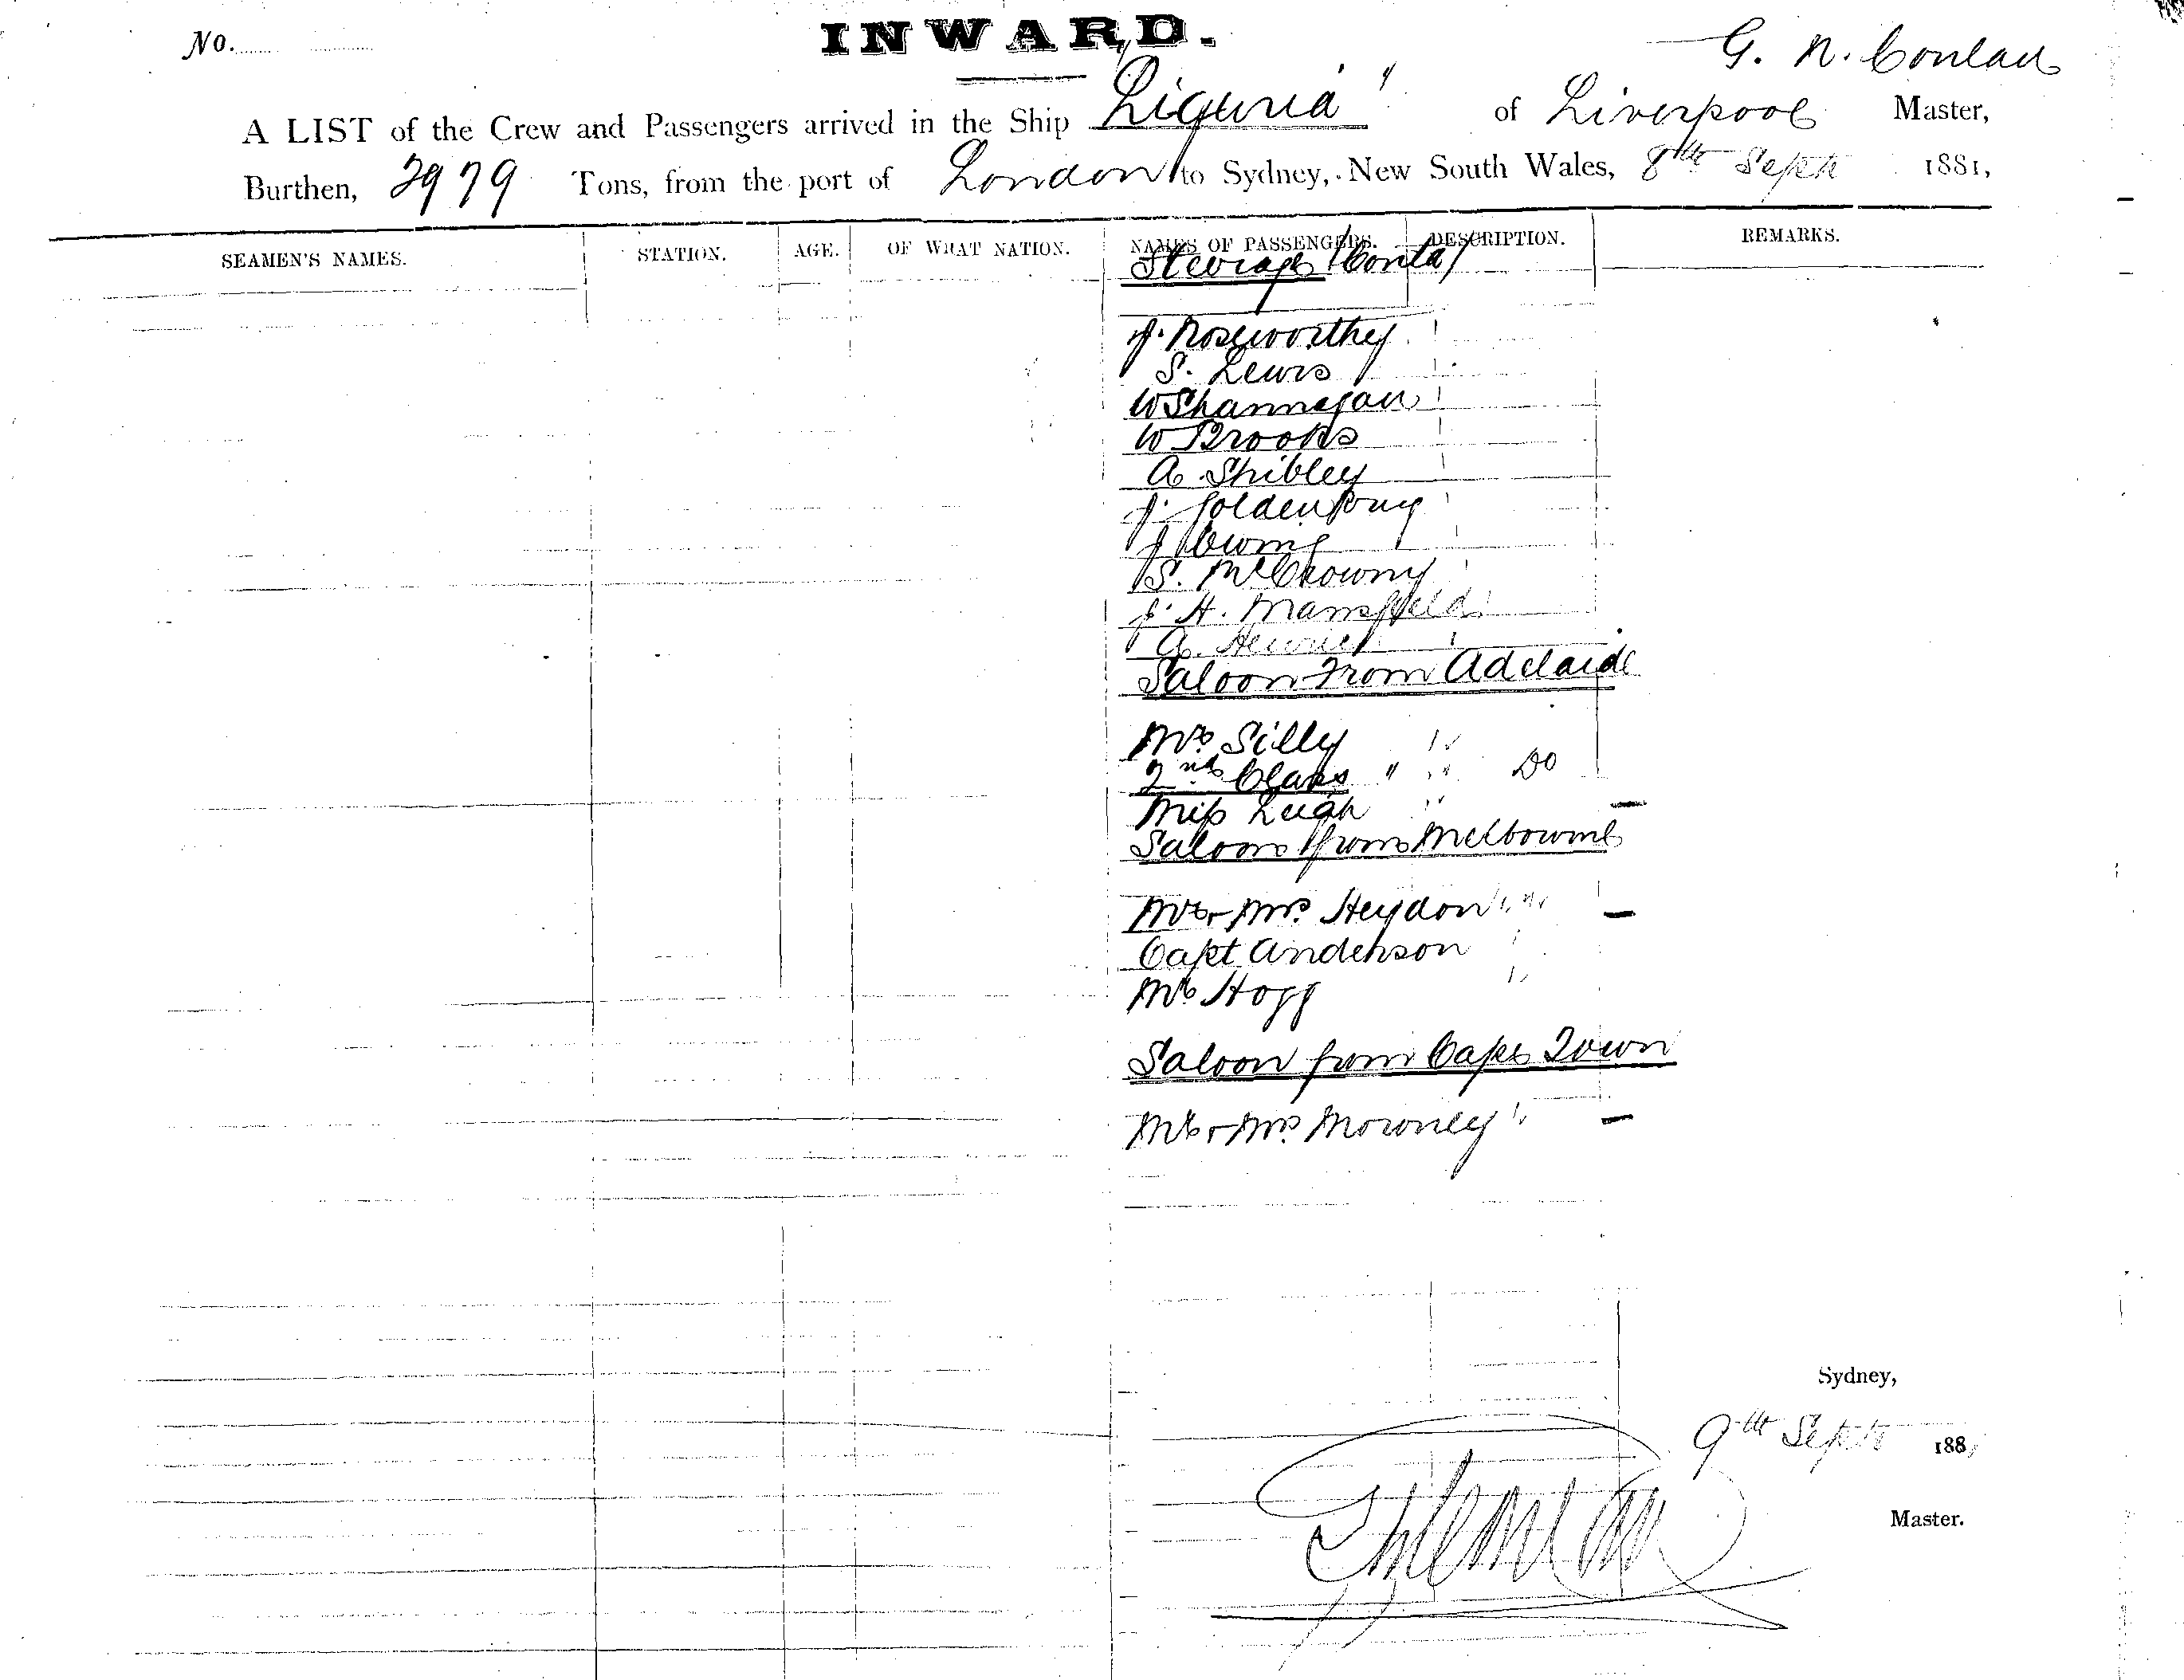 No.
INWARD.
G. N. Conlan
A LIST of the Crew and Passengers arrived in the Ship "Liguria" of Liverpool Master,
Burthen, 2979 Tons, from the port of London to Sydney, New South Wales, 8th Sept 1881,
SEAMEN'S NAMES. STATION. AGE. OF WHAT NATION. NAMES OF PASSENGERS. DESCRIPTION. REMARKS.
Steerage (Contd)
J. Roseworthy
S. Lewis
W Shannagan
W Brooks
A. Shibley
J. Goldenberg
J
S. McChowny
J. H. Mansfield
A.
Saloon from Adelaide
Mr Silly
2nd Class " " Do
Miss Leigh
Saloon from Melbourne
Mr & Mrs Heydon
Capt Anderson
Mr Hogg
Saloon from Cape Town
Mr & Mrs Mowney
Sydney,
9th Sept 1881
Master.